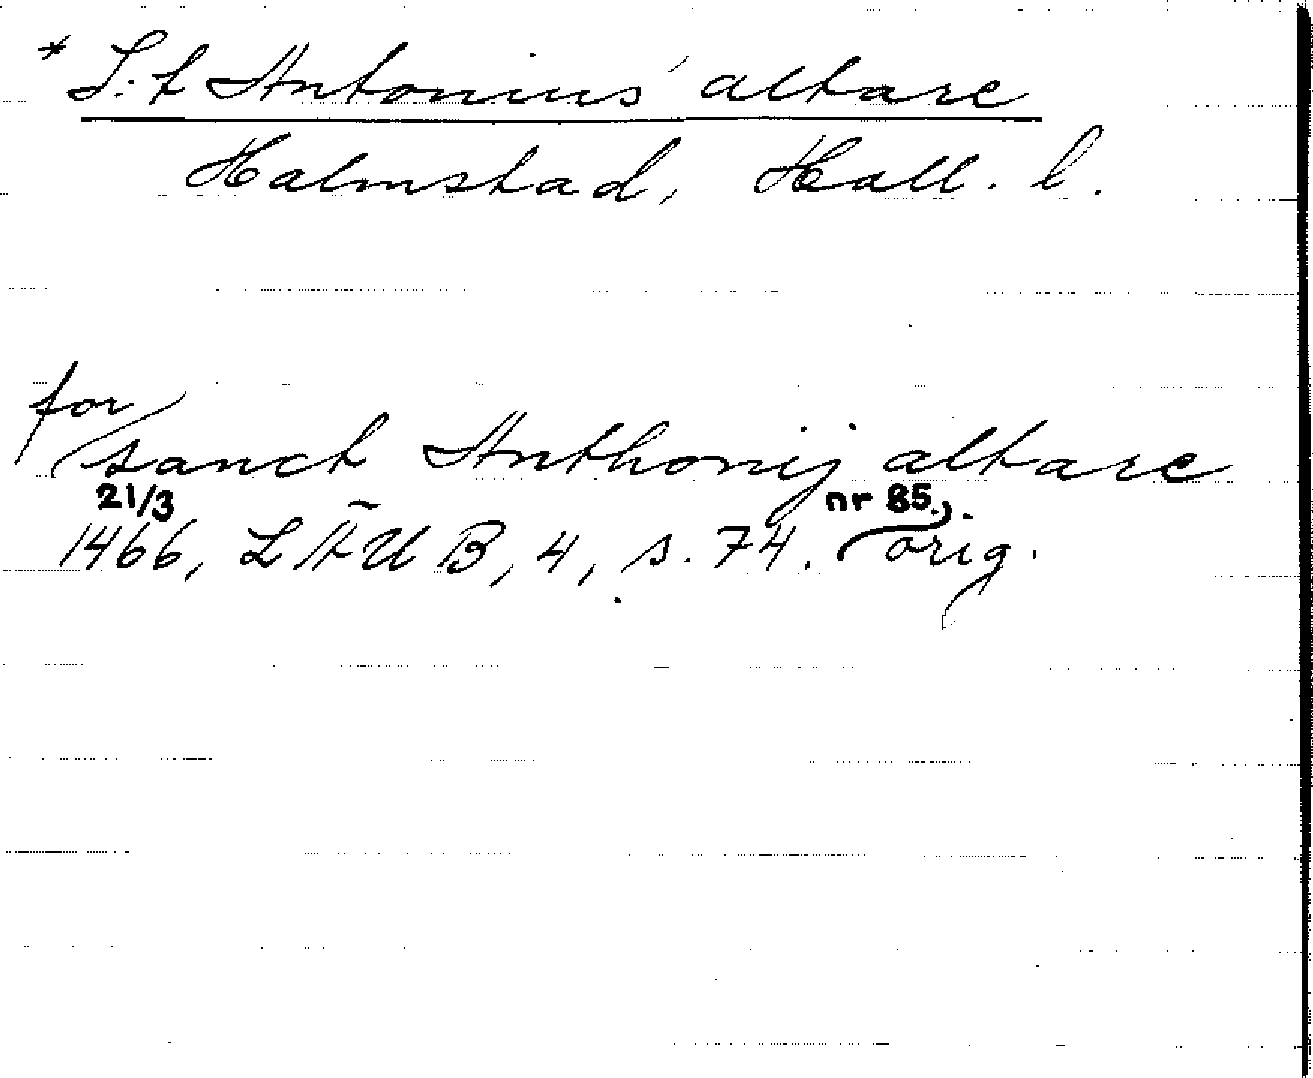 * S:t Antonius' altare
Halmstad, Hall. l.
for
sanct Anthonij altare
21/3 nr 85.
1466, LÄUB, 4, s. 74. orig.